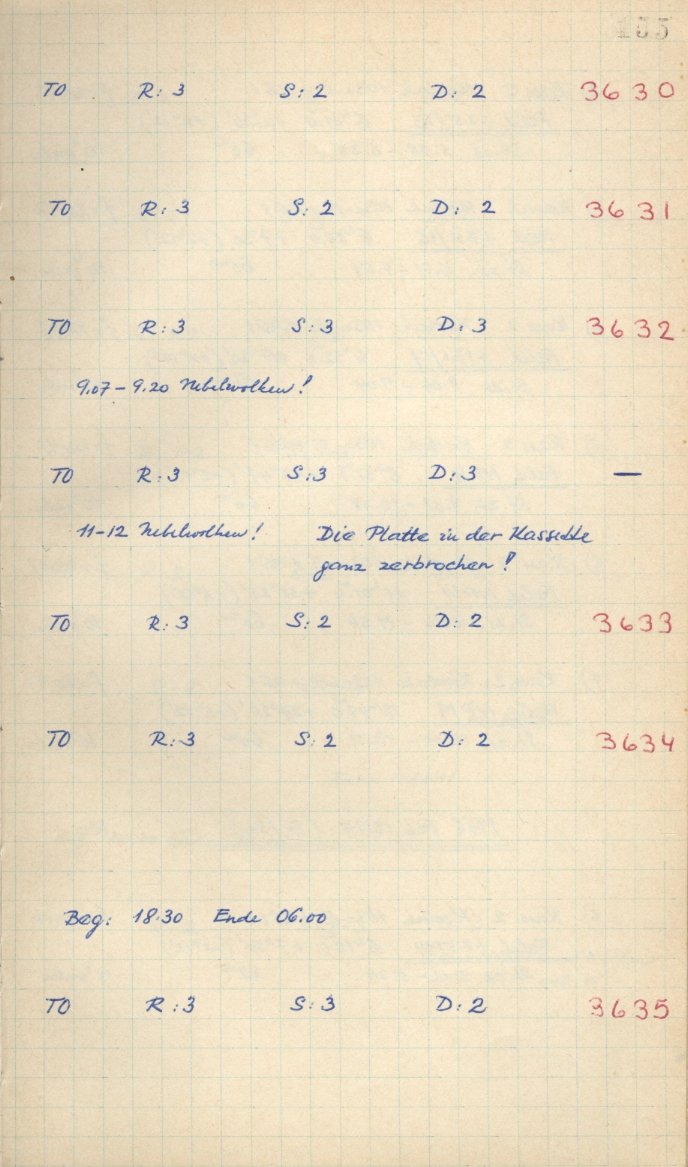 155
TO R: 3 S: 2 D: 2 3630
TO R: 3 S: 2 D: 2 3631
TO R: 3 S: 3 D: 3 3632
9.07 – 9.20 Nebelwolken!
TO R: 3 S: 3 D: 3 —
11–12 Nebelwolken! Die Platte in der Kassette
ganz zerbrochen!
TO R: 3 S: 2 D: 2 3633
TO R: 3 S: 2 D: 2 3634
Beg: 18.30 Ende 06.00
TO R: 3 S: 3 D: 2 3635